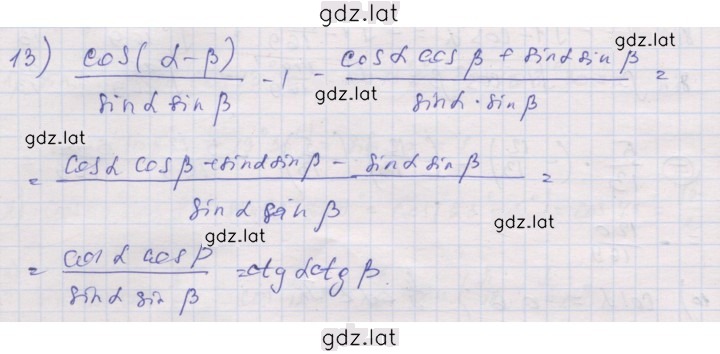 gdz.lat
13) cos(α-β) / sinα sinβ - 1 - cosα cosβ + sinα sinβ / sinα · sinβ =
gdz.lat
gdz.lat
gdz.lat
= cosα cosβ + sinα sinβ - sinα sinβ / sinα sinβ =
gdz.lat
gdz.lat
= cosα cosβ / sinα sinβ = ctgα ctgβ
gdz.lat